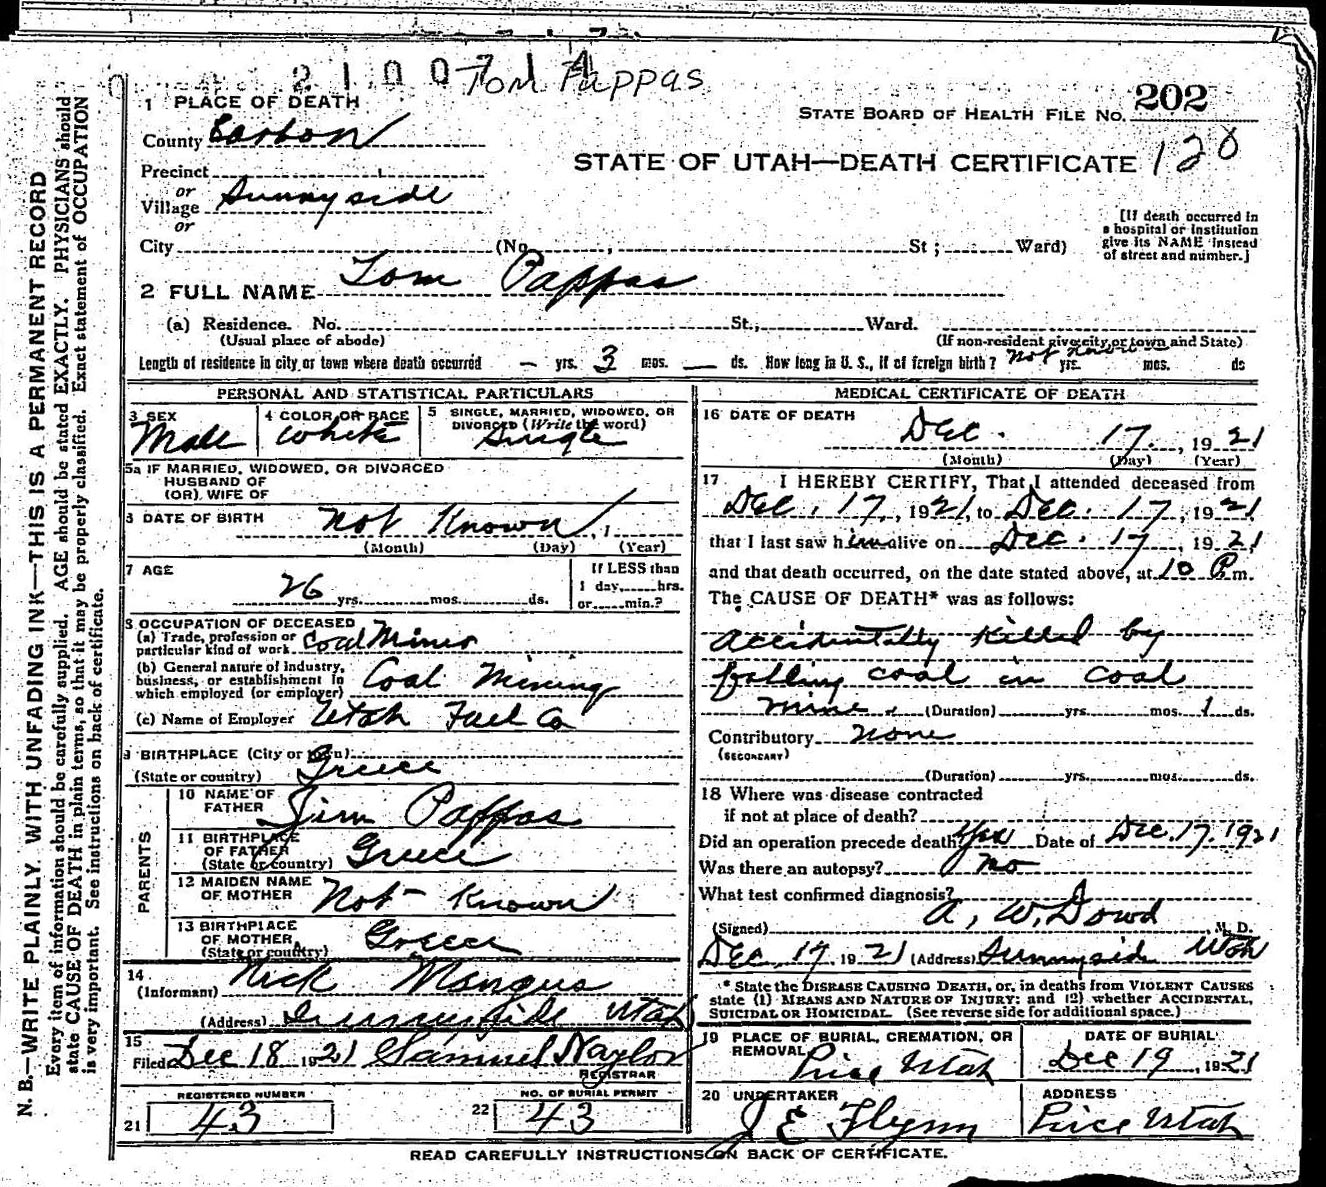 2 1 0 0 7 1 4 Tom Pappas
1 PLACE OF DEATH
STATE BOARD OF HEALTH FILE NO. 202
County Carbon
STATE OF UTAH—DEATH CERTIFICATE 120
Precinct
or
Village Sunnyside
or
City (No. , St ; Ward)
[If death occurred in
a hospital or institution
give its NAME instead
of street and number.]
2 FULL NAME Tom Pappas
(a) Residence. No. St., Ward.
(Usual place of abode) (If non-resident give city or town and State)
Length of residence in city or town where death occurred — yrs. 3 mos. — ds. How long in U. S., if of foreign birth? not known yrs. mos. ds
PERSONAL AND STATISTICAL PARTICULARS
3 SEX Male
4 COLOR OR RACE White
5 SINGLE, MARRIED, WIDOWED, OR
DIVORCED (Write the word)
Single
5a IF MARRIED, WIDOWED, OR DIVORCED
HUSBAND OF
(OR) WIFE OF
6 DATE OF BIRTH Not Known , 1
(Month) (Day) (Year)
7 AGE
26 yrs. mos. ds.
If LESS than
1 day, hrs.
or min.?
8 OCCUPATION OF DECEASED
(a) Trade, profession or
particular kind of work Coal Miner
(b) General nature of industry,
business, or establishment in
which employed (or employer) Coal Mining
(c) Name of Employer Utah Fuel Co
9 BIRTHPLACE (City or town)
(State or country) Greece
PARENTS
10 NAME OF
FATHER Jim Pappas
11 BIRTHPLACE
OF FATHER
(State or country) Greece
12 MAIDEN NAME
OF MOTHER Not Known
13 BIRTHPLACE
OF MOTHER
(State or country) Greece
14
(Informant) Nick Mangus
(Address) Sunnyside Utah
15
Filed Dec 18 1921 Samuel Naylor
REGISTRAR
REGISTERED NUMBER
21 43
NO. OF BURIAL PERMIT
22 43
MEDICAL CERTIFICATE OF DEATH
16 DATE OF DEATH
Dec. 17. , 1921
(Month) (Day) (Year)
17 I HEREBY CERTIFY, That I attended deceased from
Dec. 17, 1921, to Dec. 17, 1921
that I last saw him alive on Dec. 17, 1921
and that death occurred, on the date stated above, at 10 P.m.
The CAUSE OF DEATH* was as follows:
Accidentally Killed by
falling coal in coal
mine. (Duration) yrs. mos. 1 ds.
Contributory none
(SECONDARY)
(Duration) yrs. mos. ds.
18 Where was disease contracted
if not at place of death?
Did an operation precede death? Yes Date of Dec. 17, 1921
Was there an autopsy? no
What test confirmed diagnosis?
(Signed) A, W, Dowd M. D.
Dec 17, 1921 (Address) Sunnyside Utah
* State the DISEASE CAUSING DEATH, or, in deaths from VIOLENT CAUSES
state (1) MEANS AND NATURE OF INJURY; and (2) whether ACCIDENTAL,
SUICIDAL OR HOMICIDAL. (See reverse side for additional space.)
19 PLACE OF BURIAL, CREMATION, OR
REMOVAL Price Utah
DATE OF BURIAL
Dec 19, 1921
20 UNDERTAKER
J E Flynn
ADDRESS
Price Utah
READ CAREFULLY INSTRUCTIONS ON BACK OF CERTIFICATE.
N. B.—WRITE PLAINLY, WITH UNFADING INK—THIS IS A PERMANENT RECORD
Every item of information should be carefully supplied. AGE should be stated EXACTLY. PHYSICIANS should
state CAUSE OF DEATH in plain terms, so that it may be properly classified. Exact statement of OCCUPATION
is very important. See instructions on back of certificate.